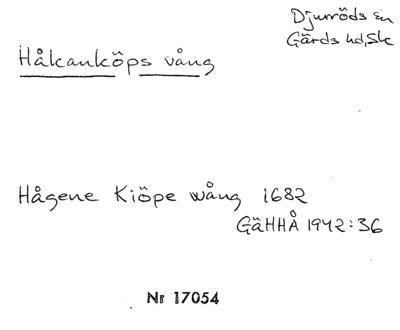 Djurröds sn
Gärds hd, Sk
Håkanköps vång
Hågene Kiöpe wång 1682
GäHHÅ 1942:36
Nr 17054